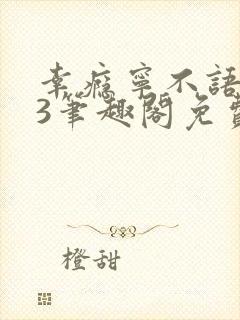 幸瘾宁不語
3筆趣閣免費
橙甜